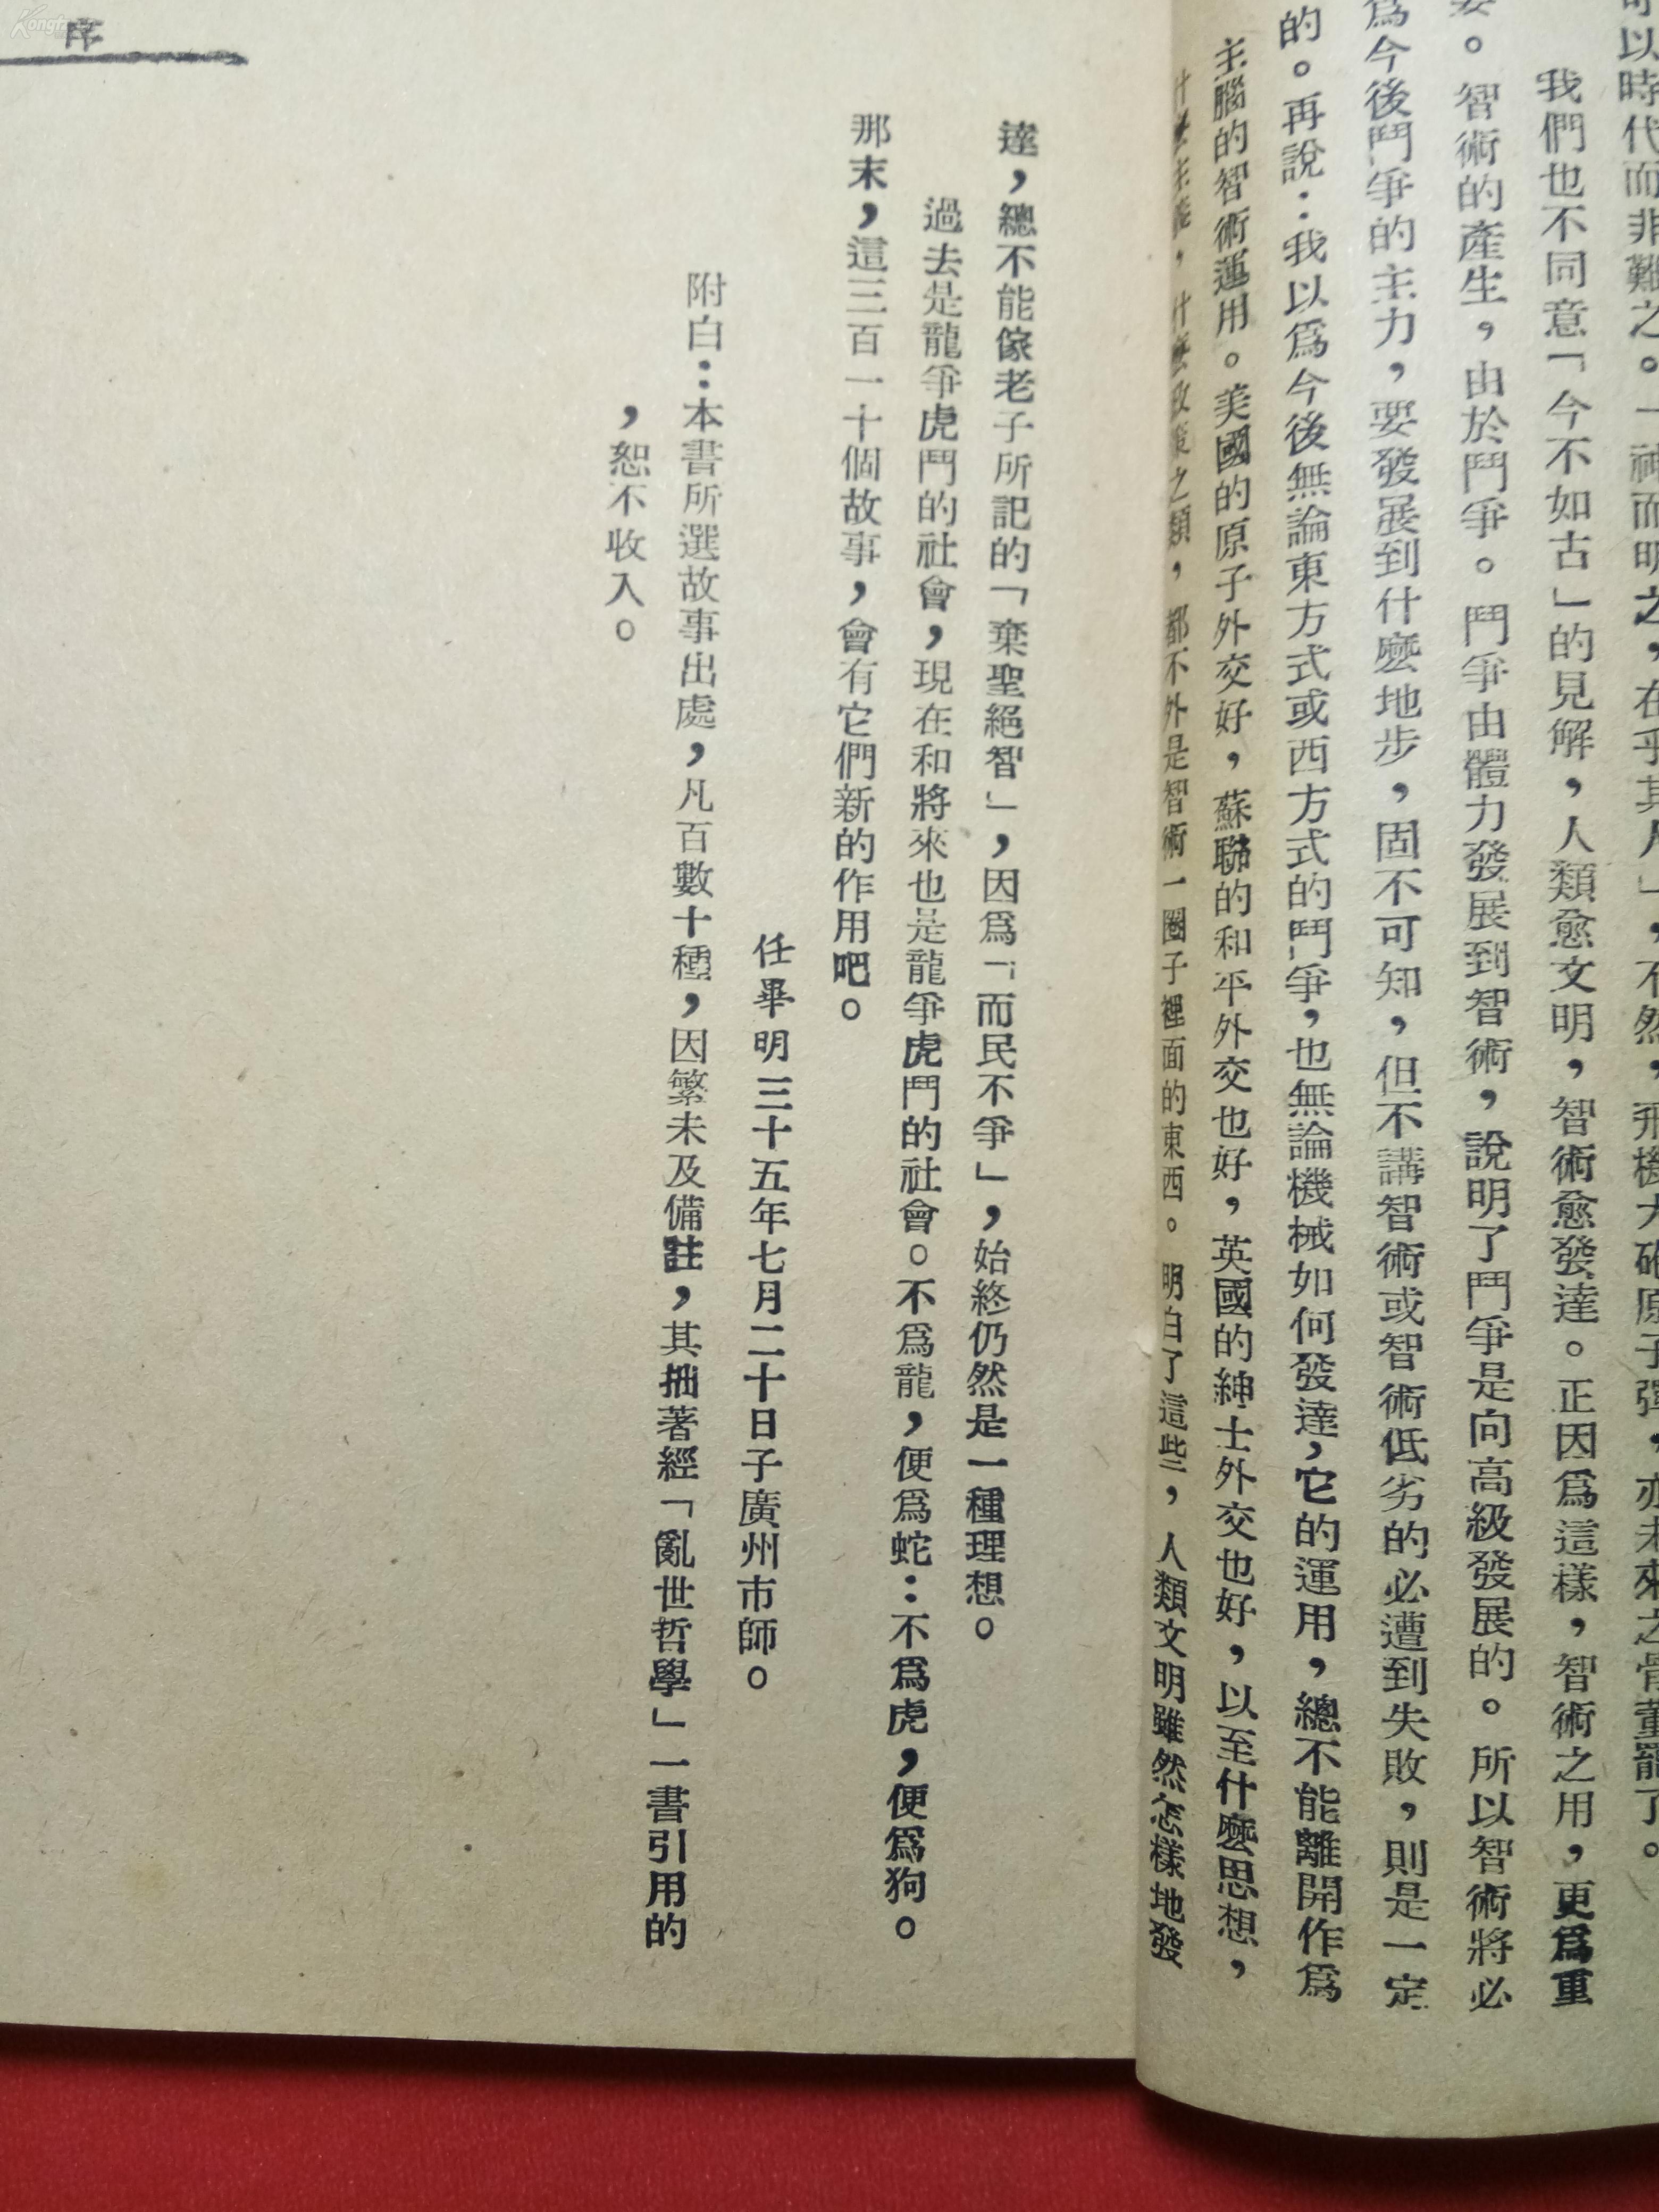 可以時代而非難之。一神而明之，在乎其人」，不然，飛機大砲原子彈，亦未來之骨董罷了。
我們也不同意「今不如古」的見解，人類愈文明，智術愈發達。正因爲這樣，智術之用，更爲重
要。智術的產生，由於鬥爭。鬥爭由體力發展到智術，說明了鬥爭是向高級發展的。所以智術將必
爲今後鬥爭的主力，要發展到什麼地步，固不可知，但不講智術或智術低劣的必遭到失敗，則是一定
的。再說：我以爲今後無論東方式或西方式的鬥爭，也無論機械如何發達，它的運用，總不能離開作爲
主腦的智術運用。美國的原子外交好，蘇聯的和平外交也好，英國的紳士外交也好，以至什麼思想，
什麼主義，什麼政策之類，都不外是智術一圈子裡面的東西。明白了這些，人類文明雖然怎樣地發
序
達，總不能傢老子所記的「棄聖絕智」，因爲「而民不爭」，始終仍然是一種理想。
過去是龍爭虎鬥的社會，現在和將來也是龍爭虎鬥的社會。不爲龍，便爲蛇：不爲虎，便爲狗。
那末，這三百一十個故事，會有它們新的作用吧。
任畢明三十五年七月二十日子廣州市師。
附白：本書所選故事出處，凡百數十種，因繁未及備註，其拙著經「亂世哲學」一書引用的
，恕不收入。